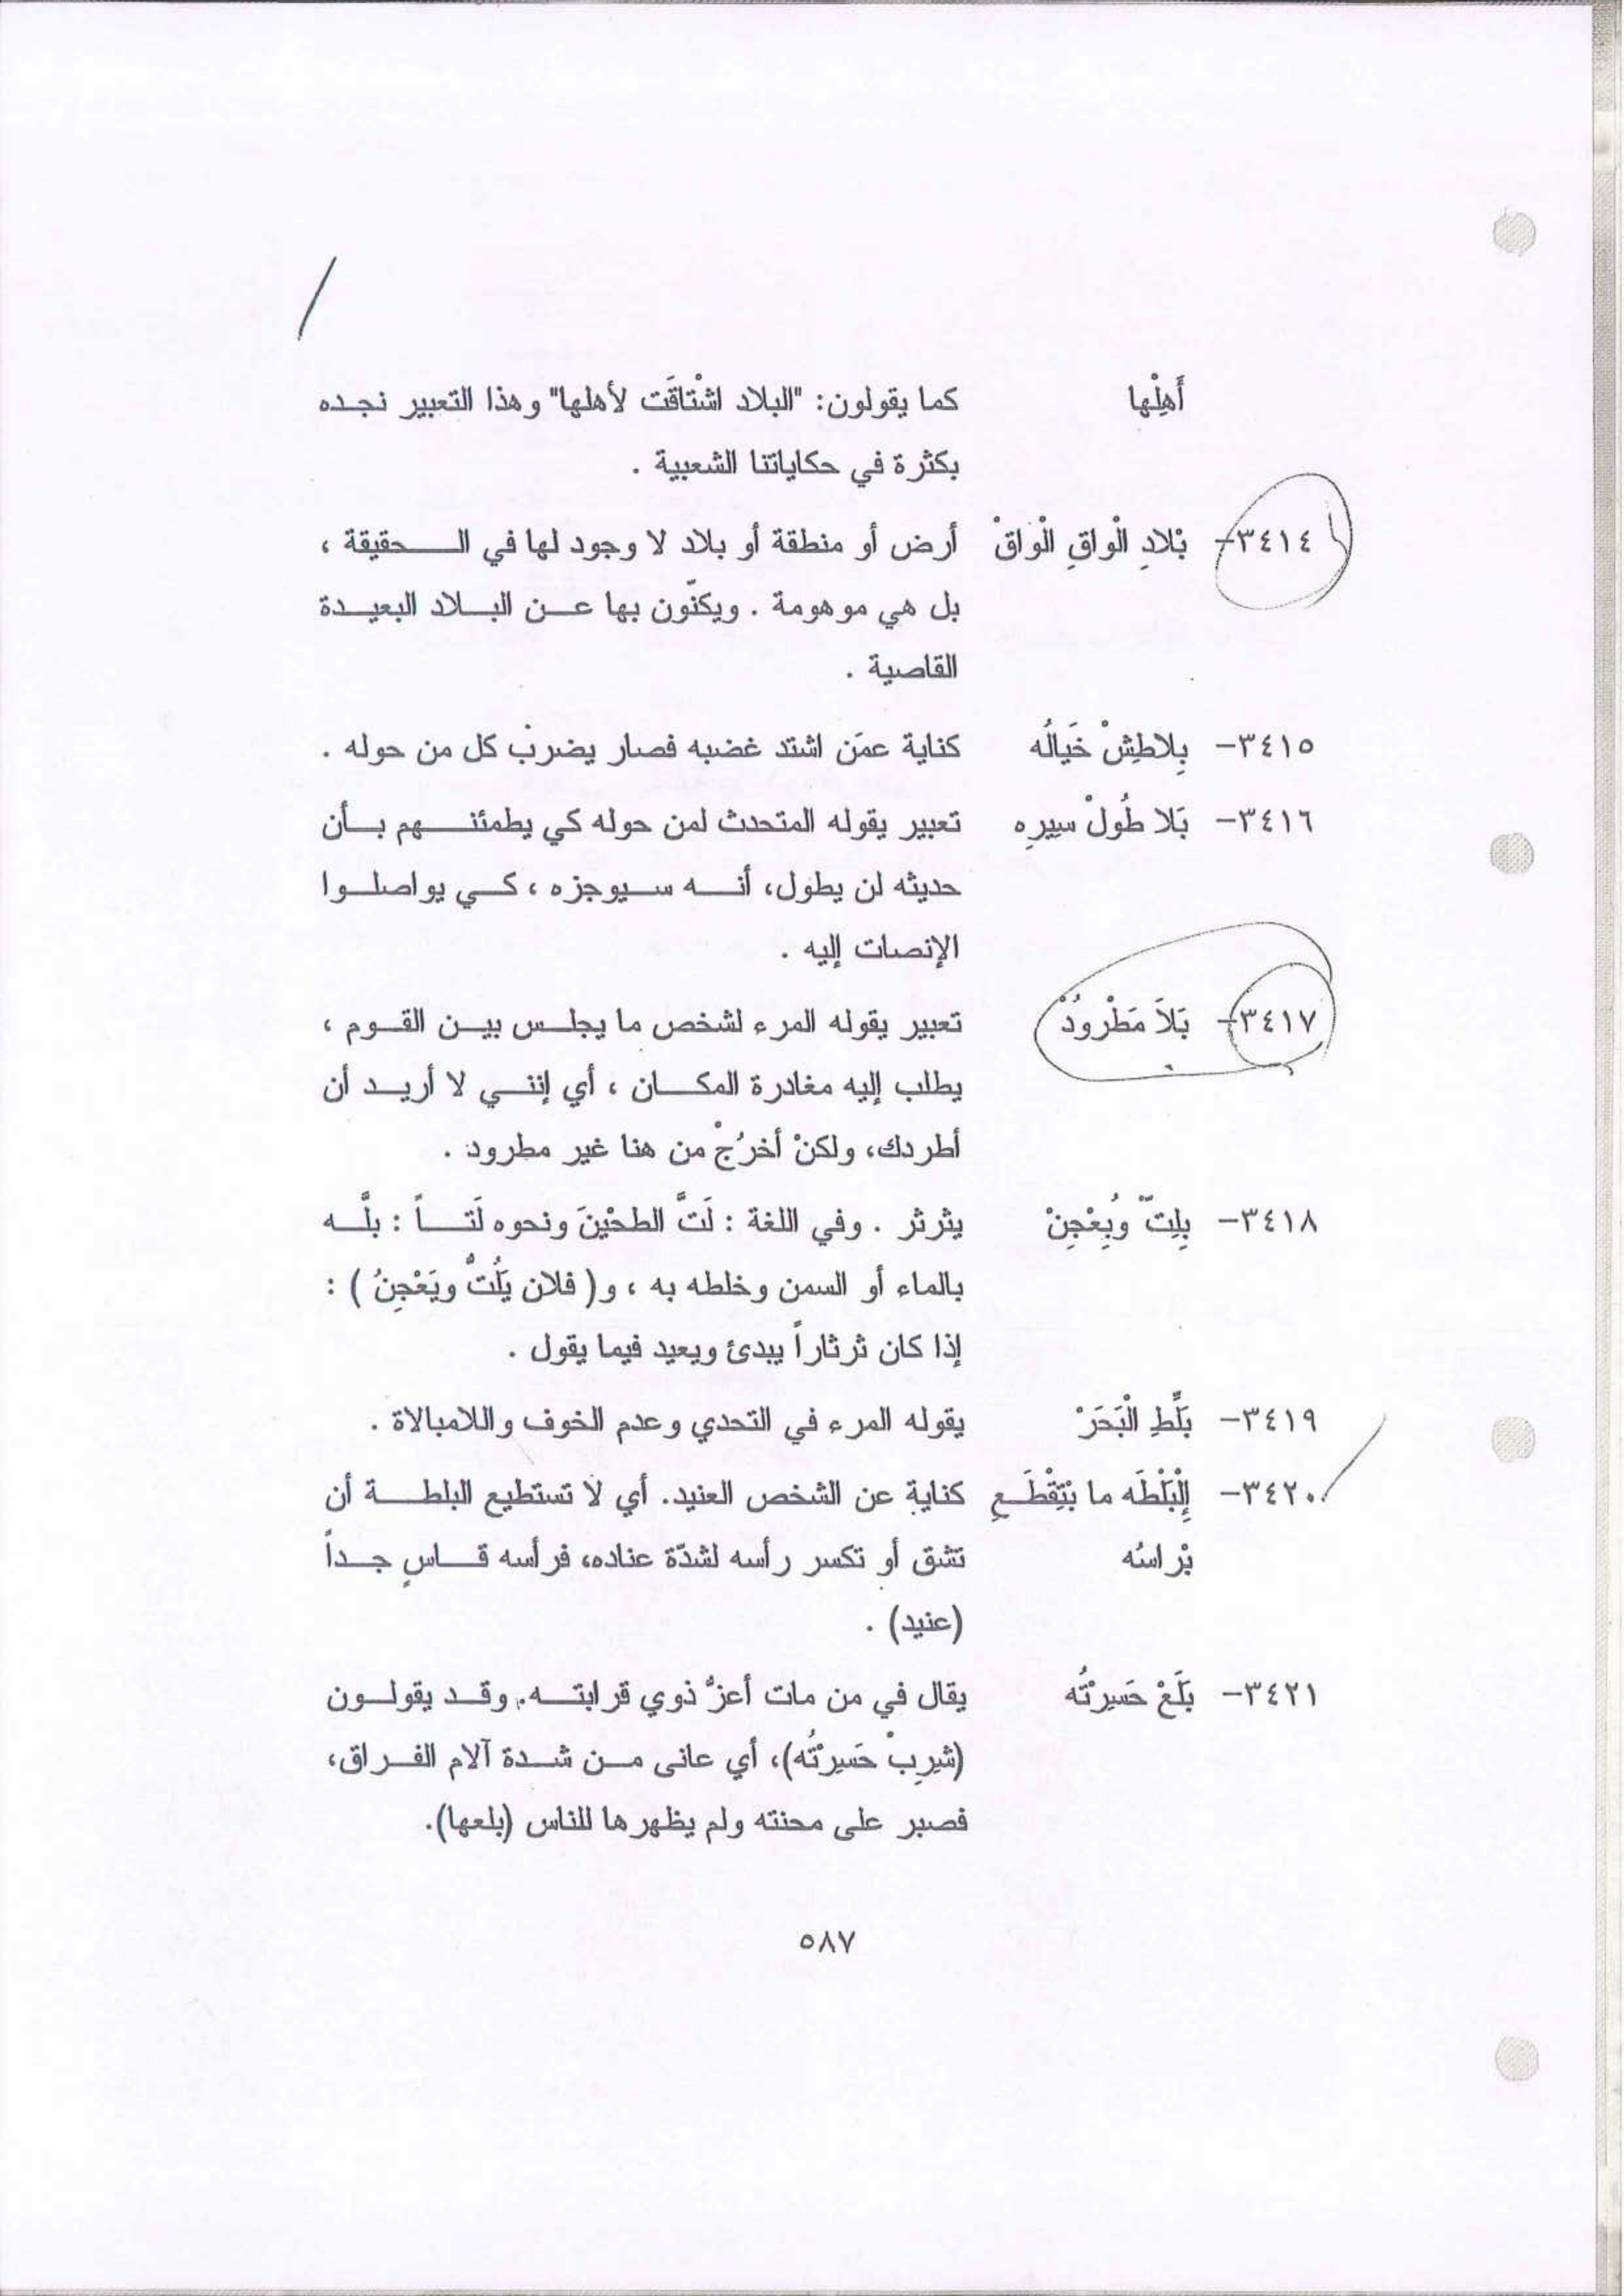 أَهِلْها كما يقولون: "البلاد اشْتاقَت لأهلها" وهذا التعبير نجده
بكثرة في حكاياتنا الشعبية .
٣٤١٤– بْلادِ الْواقِ الْواقْ أرض أو منطقة أو بلاد لا وجود لها في الحقيقة ،
بل هي موهومة . ويكنّون بها عن البلاد البعيدة
القاصية .
٣٤١٥– بِلاطِشْ خَيالُه كناية عمَن اشتد غضبه فصار يضربْ كل من حوله .
٣٤١٦– بَلا طُولْ سِيرِه تعبير يقوله المتحدث لمن حوله كي يطمئنهم بأن
حديثه لن يطول، أنه سيوجزه ، كي يواصلوا
الإنصات إليه .
٣٤١٧– بَلاَ مَطْرودُْ تعبير يقوله المرء لشخص ما يجلس بين القوم ،
يطلب إليه مغادرة المكان ، أي إنني لا أريد أن
أطردك، ولكنْ أخرُجْ من هنا غير مطرود .
٣٤١٨– بِلِتّ وُبِعْجِنْ يثرثر . وفي اللغة : لَتَّ الطحْيْنَ ونحوه لَتاً : بلَّه
بالماء أو السمن وخلطه به ، و( فلان يَلُتُّ ويَعْجِنُ ) :
إذا كان ثرثاراً يبدئ ويعيد فيما يقول .
٣٤١٩– بَلِّطِ الْبَحَرْ يقوله المرء في التحدي وعدم الخوف واللامبالاة .
٣٤٢٠– إِلْبَلْطَه ما بْتِقْطَعِ كناية عن الشخص العنيد. أي لا تستطيع البلطة أن
بْراسُه تشق أو تكسر رأسه لشدّة عناده، فرأسه قاسٍ جداً
(عنيد) .
٣٤٢١– بَلَعْ حَسِيرْتُه يقال في من مات أعزُّ ذوي قرابته. وقد يقولون
(شيرِبْ حَسيرْتُه)، أي عانى من شدة آلام الفراق،
فصبر على محنته ولم يظهرها للناس (بلعها).
٥٨٧